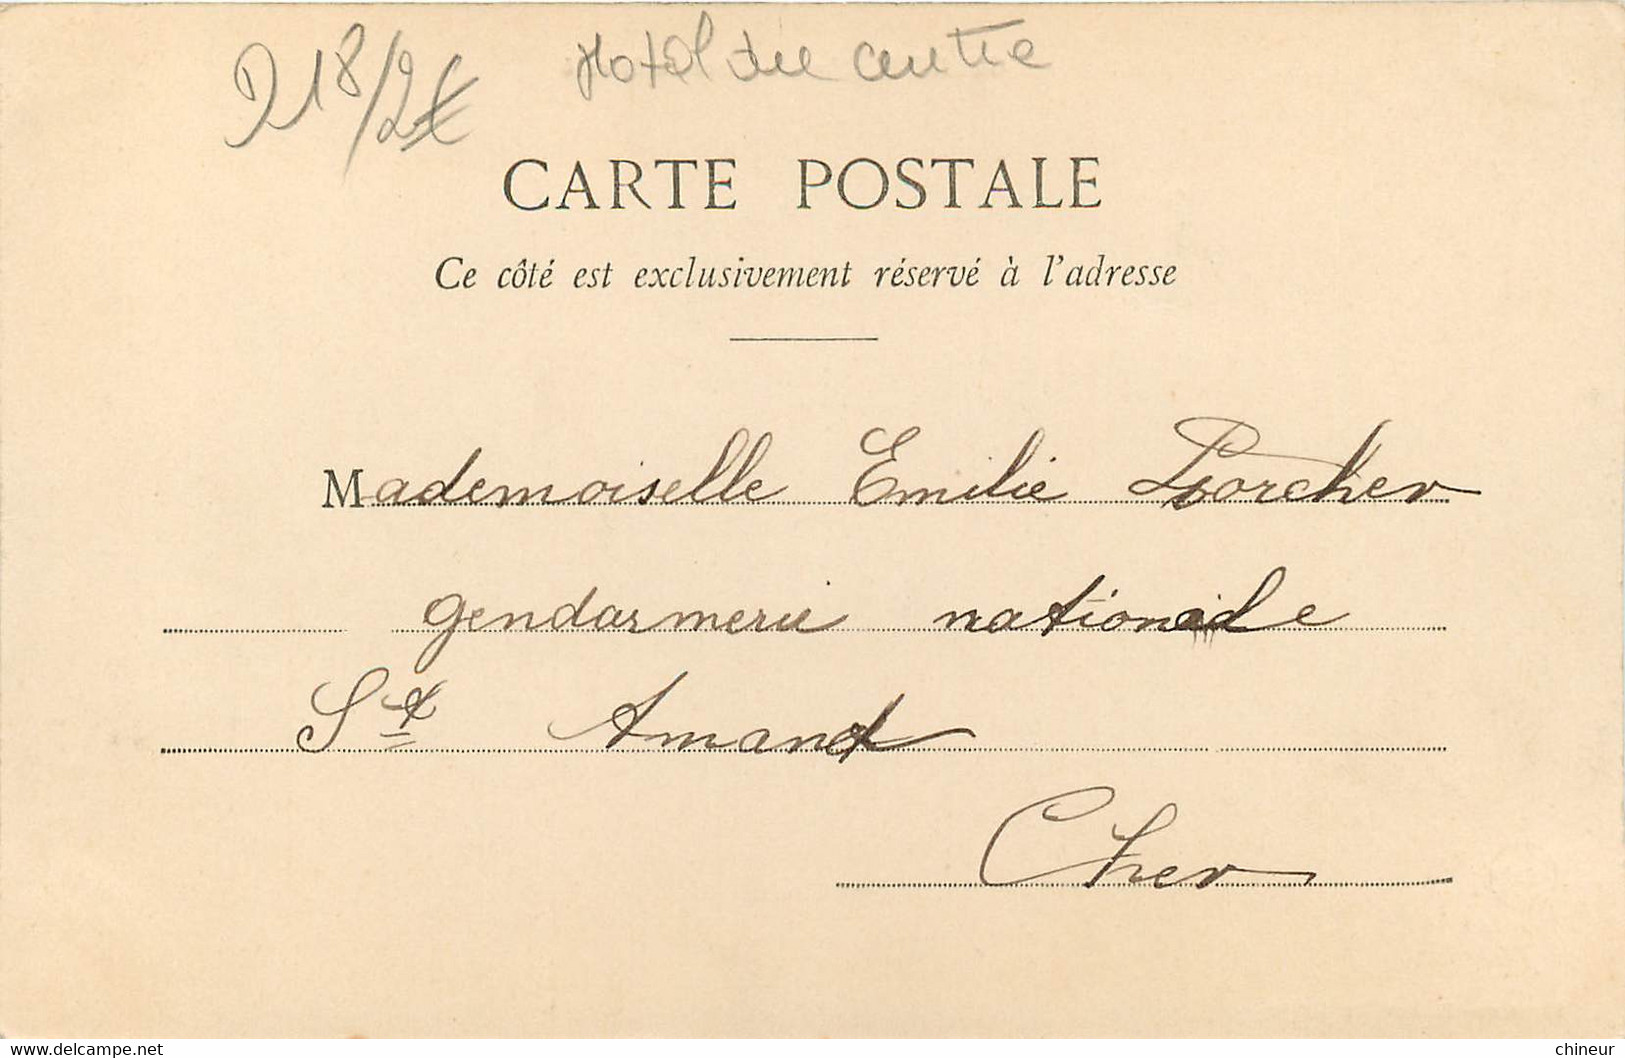 D18/2€ Hotel du centre
CARTE POSTALE
Ce côté est exclusivement réservé à l'adresse
Mademoiselle Emilie Porcher
gendarmerie nationale
St Amand
Cher
www.delcampe.net
chineur